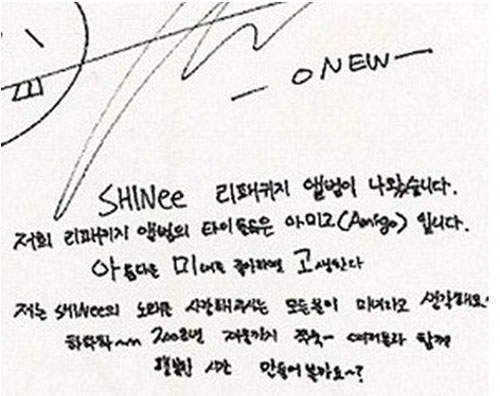 — ONEW —
SHINee 리패키지 앨범이 나왔습니다.
저희 리패키지 앨범의 타이틀은 아.미.고(Amigo) 입니다.
아름다운 미녀를 좋아하면 고생한다
저는 SHINee의 노래를 사랑해주시는 모든분이 미녀라고 생각해요~
하하하~~ 2008년 겨울까지 쭈욱- 여러분과 함께
행복한 시간 만들어 볼까요~?